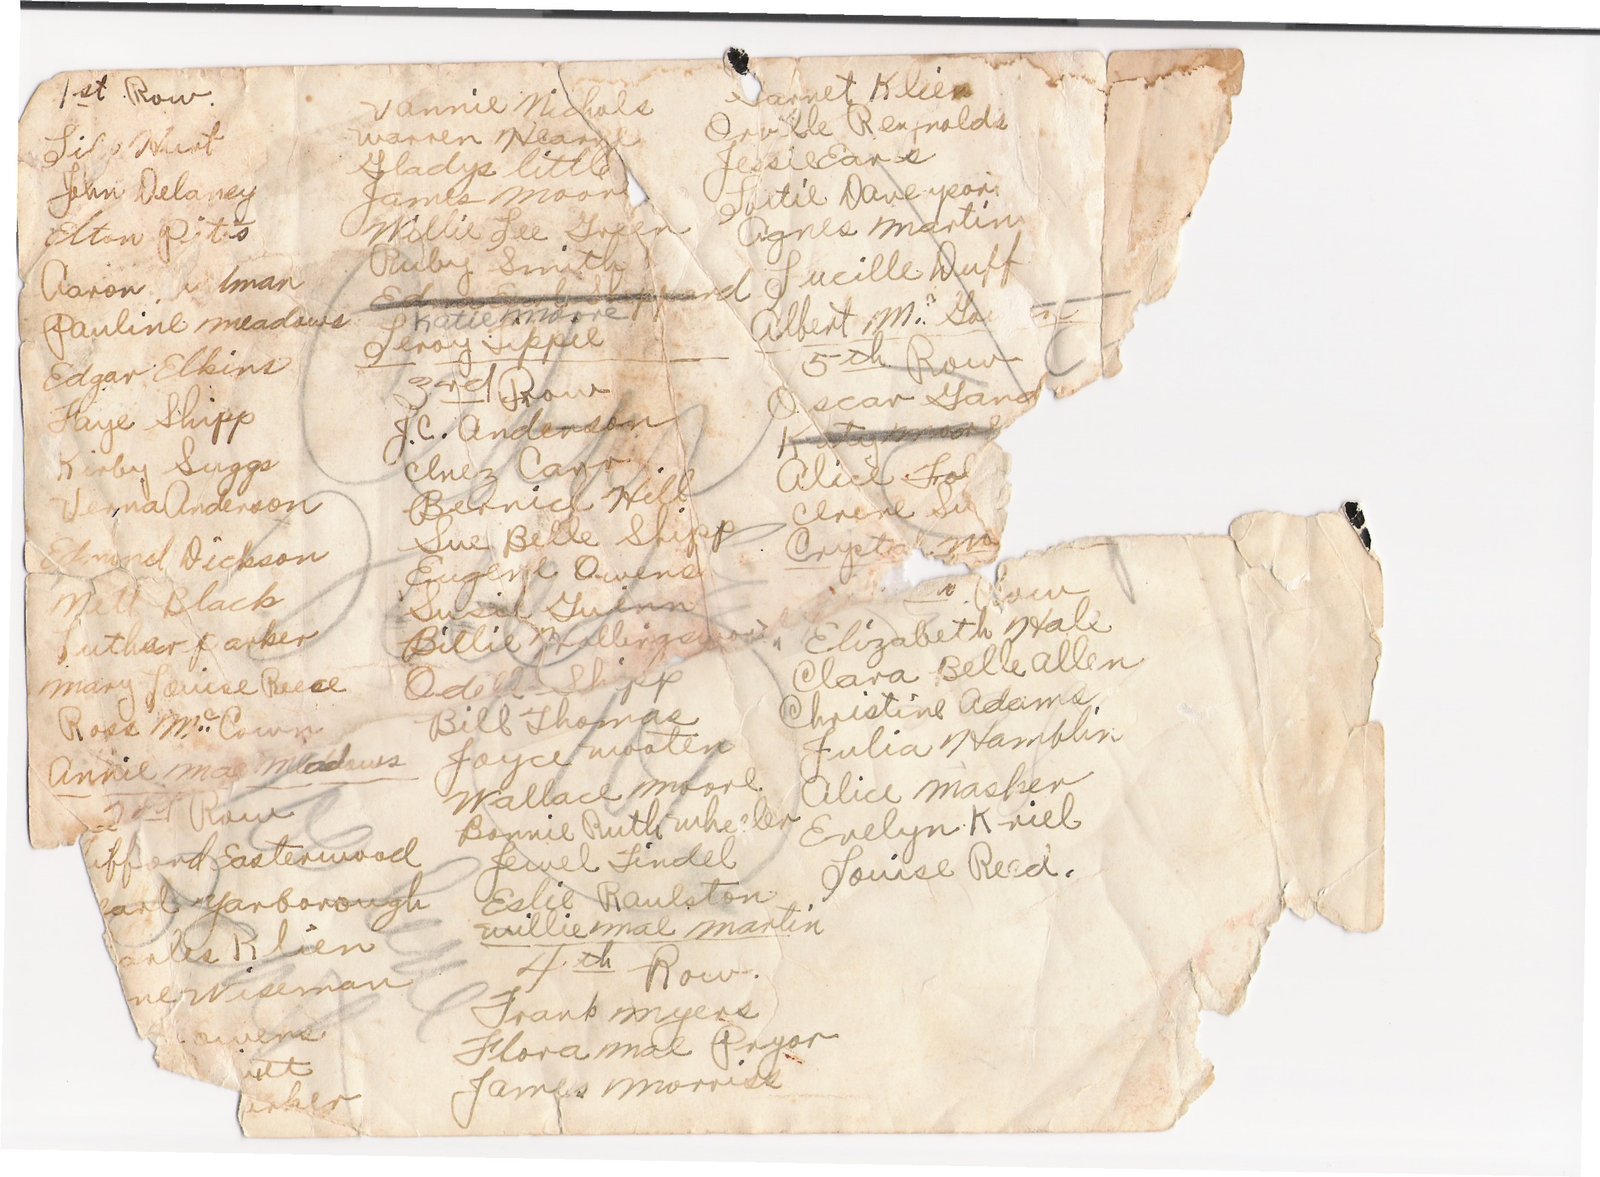 1st Row.
Hurt
John Delaney
Elton Pitts
Aaron lman
Pauline Meadows
Edgar Elkins
Faye Shipp
Kirby Suggs
Verna Anderson
Edmond Dickson
Nell Black
Luther Parker
Mary Louise Reese
Ross McCown
Annie Mae Meadows
2nd Row
ifford Easterwood
earl Yarborough
arles Klien
ne Wiseman
owens
utt
arker
Vannie Nichols
Warren Hearne
Gladys Little
James Moore
Willie Lee Green
Ruby Smith
Edna Earl Sheppard
Katie Moore
Leroy Tippie
3rd Row
J.C. Anderson
Inez Carr
Bernice Hill
Sue Belle Shipp
Eugene Owens
Susie Guinn
Billie Hollingsworth
Odell Shipp
Bill Thomas
Joyce Wooten
Wallace Moore
Bonnie Ruth Wheeler
Jewel Lindel
Eslie Raulston
Willie Mae Martin
4th Row.
Frank Myers
Flora Mae Pryor
James Morriss
arnet Klien
Orville Reynolds
Jessie
Davenpor
Agnes Martin
Lucille Duff
Albert Mc
5th Row
Oscar
Katy Moore
Alice
Irene Su
Crystal Mo
Row
Elizabeth Hale
Clara Belle Allen
Christine Adams.
Julia Hamblin
Alice Masher
Evelyn Kriel
Louise Reed.